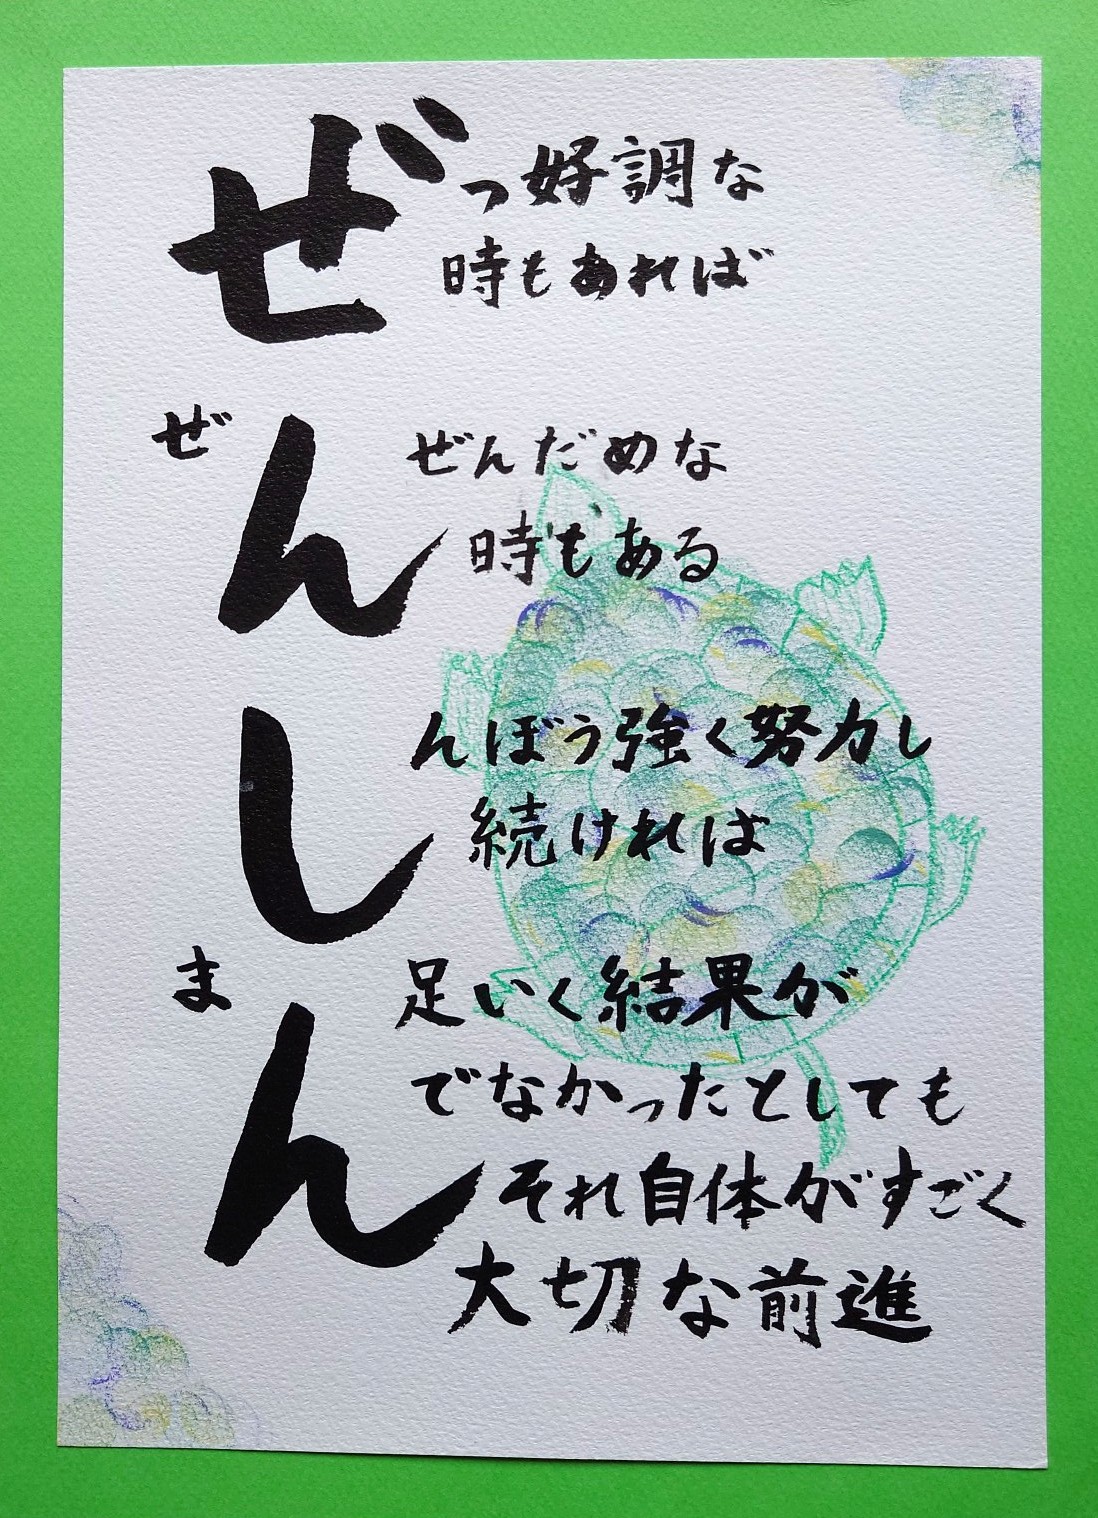 ぜっ好調な
時もあれば
ぜんぜんだめな
時もある
しんぼう強く努力し
続ければ
まん足いく結果が
でなかったとしても
それ自体がすごく
大切な前進